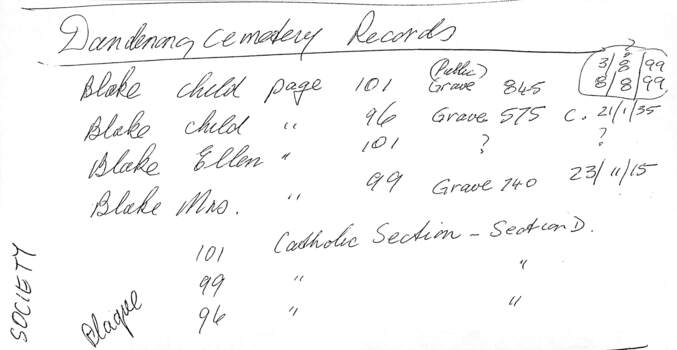 Dandenong Cemetery Records
?
Blake child page 101 (Public) Grave 845 3/8/99 8/8/99
Blake child " 96 Grave 575 C. 21/1/35
Blake Ellen " 101 ? ?
Blake Mrs. " 99 Grave 740 23/11/15
101 Catholic Section - Section D.
99 " "
Plaque 96 " "
SOCIETY